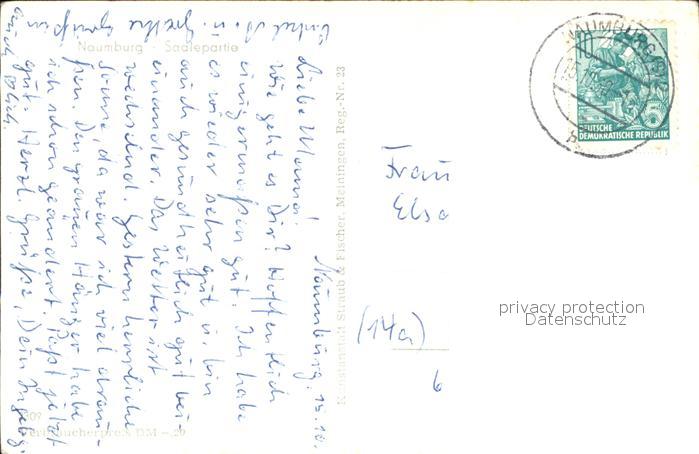 Naumburg · Saalepartie
Naumburg, 15.10.
Liebe Mama!
Wie geht es Dir? Hoffentlich
einigermaßen gut. Ich habe
es wieder sehr gut u. bin
auch gesundheitlich gut bei-
einander. Das Wetter ist
wechselnd. Gestern herrliche
Sonne, da war ich viel drau-
ßen. Den grauen Hänger habe
ich schon geändert. Paßt jetzt
gut. Herzl. Grüße, Dein Ingeb.
Onkel u. grüßen
auch
Verbraucherpreis DM -,20
Kunstanstalt Straub & Fischer, Meiningen, Reg.-Nr. 23
NAUMBURG
10
5
DEUTSCHE
DEMOKRATISCHE REPUBLIK
Frau
Elsa
(14a)
6
privacy protection
Datenschutz